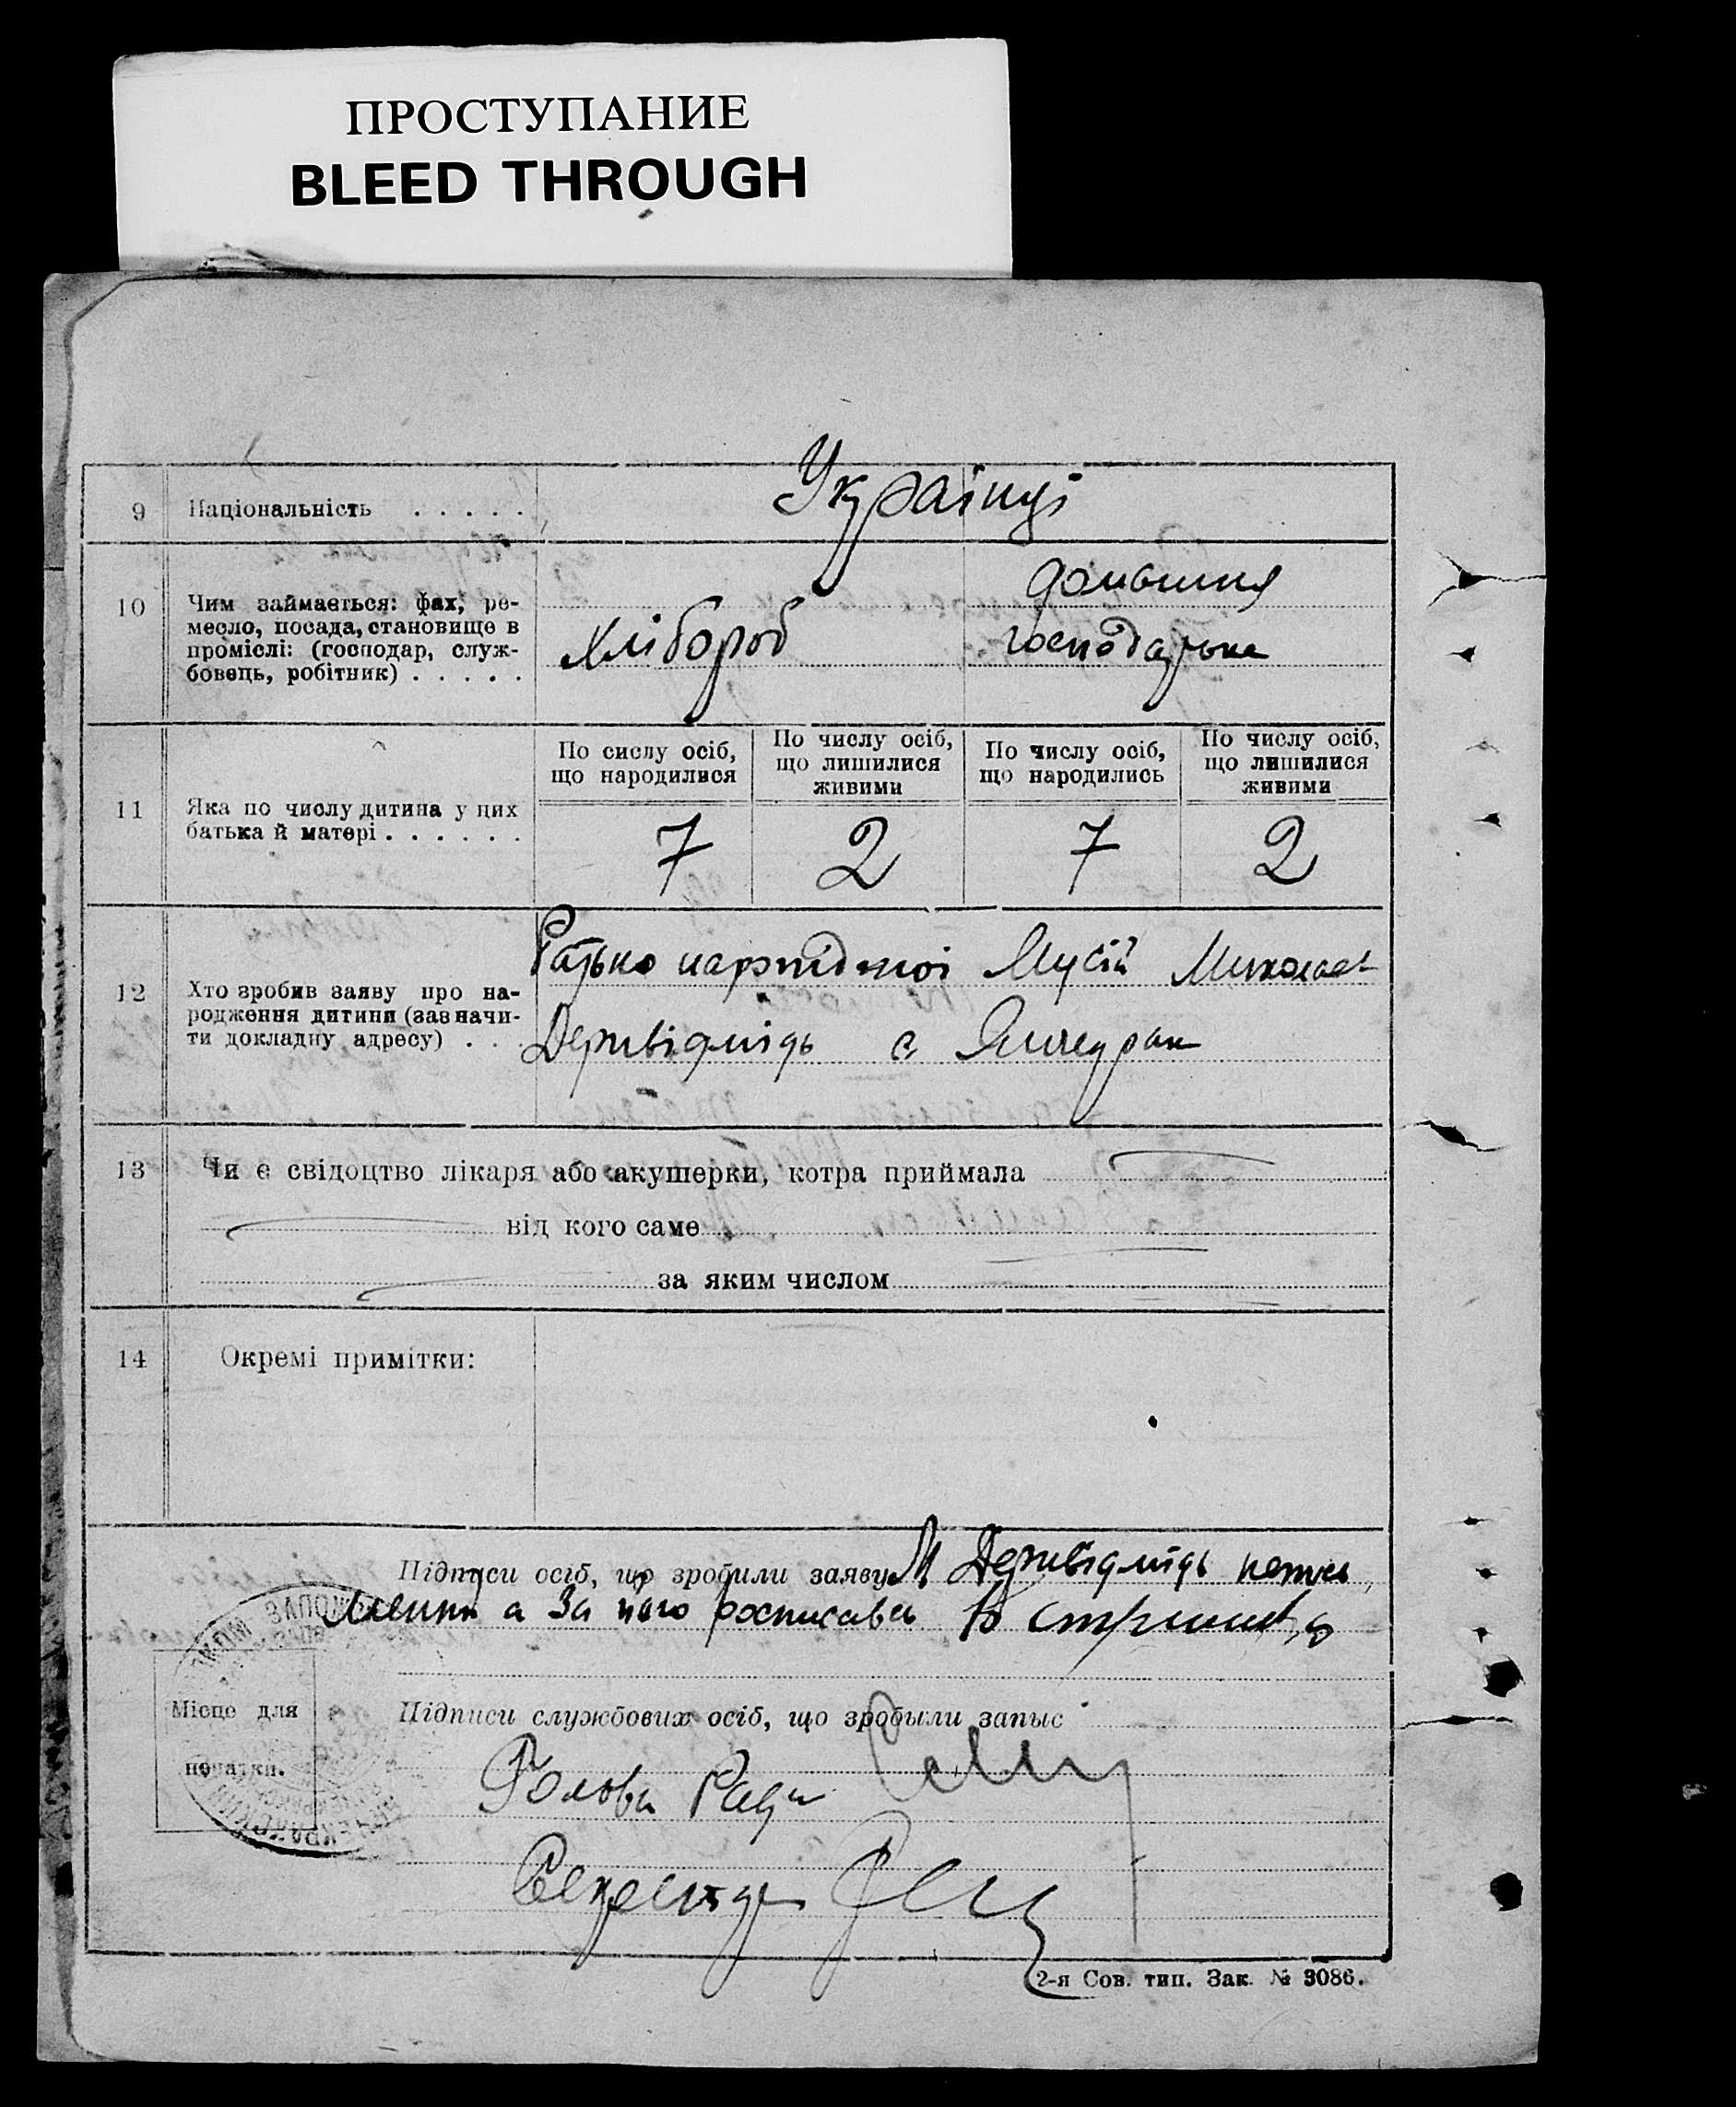 ПРОСТУПАНИЕ
BLEED THROUGH
9 Національність . . . . . Українці
10 Чим займається: фах, ре-
месло, посада, становище в
проміслі: (господар, служ-
бовець, робітник) . . . . .
Хлібороб
домашня
господарька
11 Яка по числу дитина у цих
батька й матері . . . . . .
По сислу осіб,
що народилися
По числу осіб,
що лишилися
живими
По числу осіб,
що народились
По числу осіб,
що лишилися
живими
7 2 7 2
12 Хто зробив заяву про на-
родження дитини (зазначи-
ти докладну адресу) . . .
Батько Мусій
с Янчекрак
13 Чи є свідоцтво лікаря або акушерки, котра приймала
від кого саме
за яким числом
14 Окремі примітки:
Підписи осіб, що зробили заяву М
а За його росписавсь
Місце для
печатки.
Підписи службових осіб, що зробыли запыс
Голова Ради
Секретар
2-я Сов. тип. Зак. № 3086.